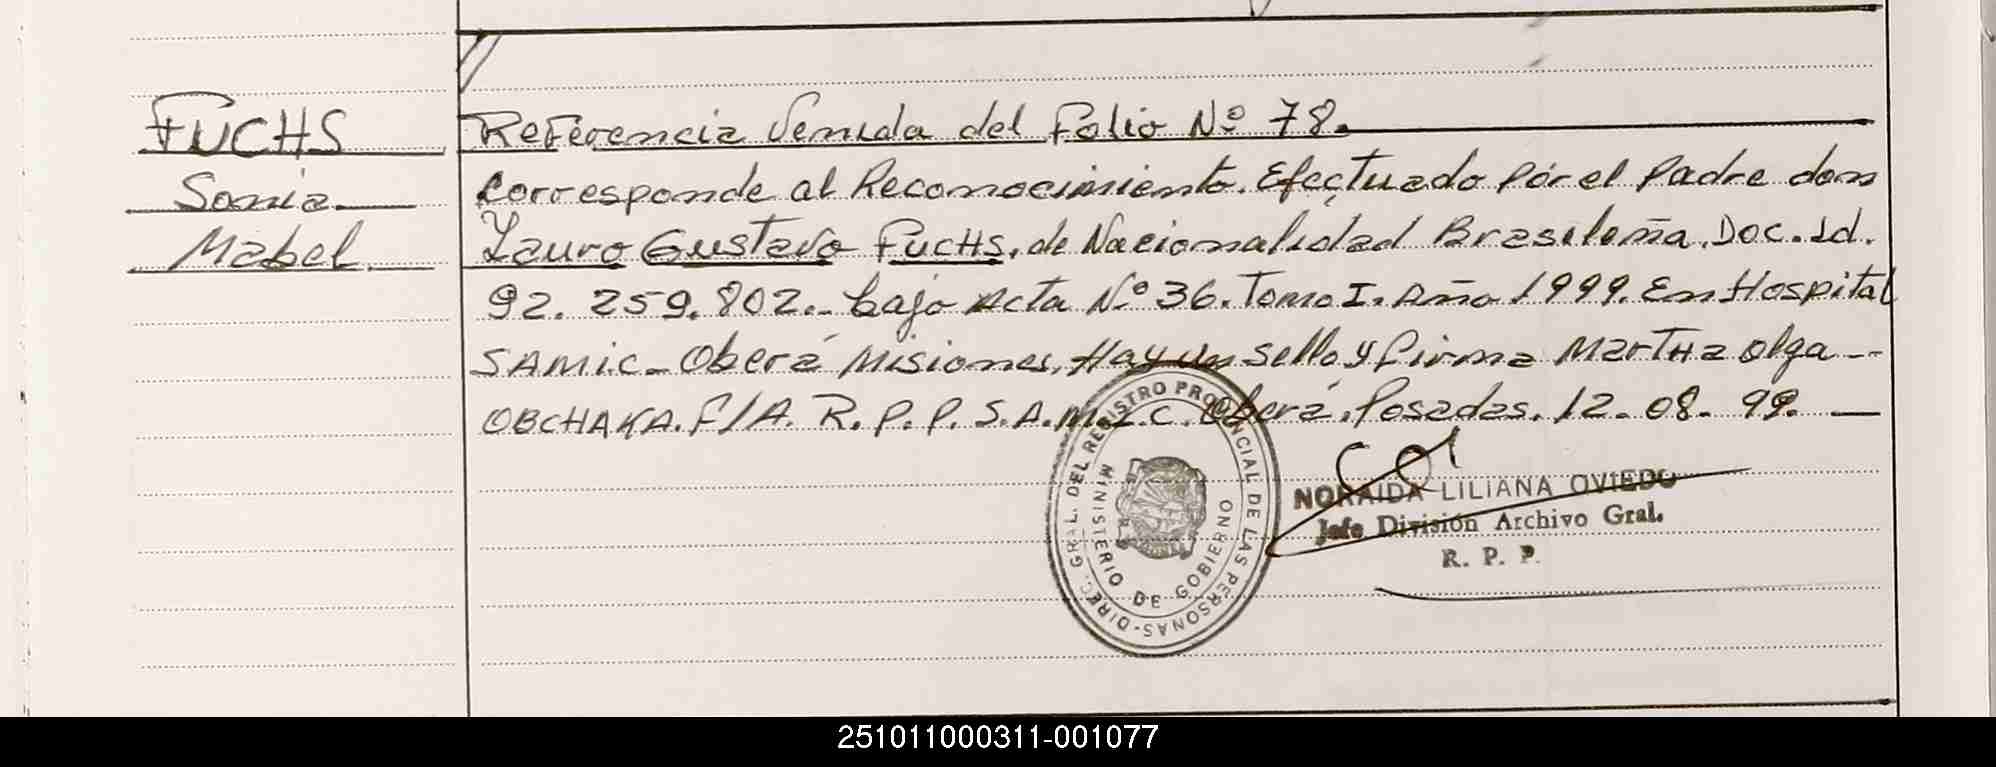 FUCHS
Sonia
Mabel
Referencia Venida del Folio Nº 78.
Corresponde al Reconocimiento. Efectuado Pór el Padre don
Lauro Gustavo Fuchs, de Nacionalidad Brasileña. Doc. Id.
92. 259. 802.- bajo Acta Nº 36. Tomo I. Año 1999. En Hospital
SAMIC - Oberá Misiones, Hay un Sello y firma Martha Olga --
OBCHAKA. F/A. R. P. P. S. A. M. I. C. Oberá. Posadas, 12-08-99. —
DIREC. GRAL. DEL REGISTRO PROVINCIAL DE LAS PERSONAS-
MINISTERIO DE GOBIERNO
NORAIDA LILIANA OVIEDO
Jefe División Archivo Gral.
R. P. P.
251011000311-001077